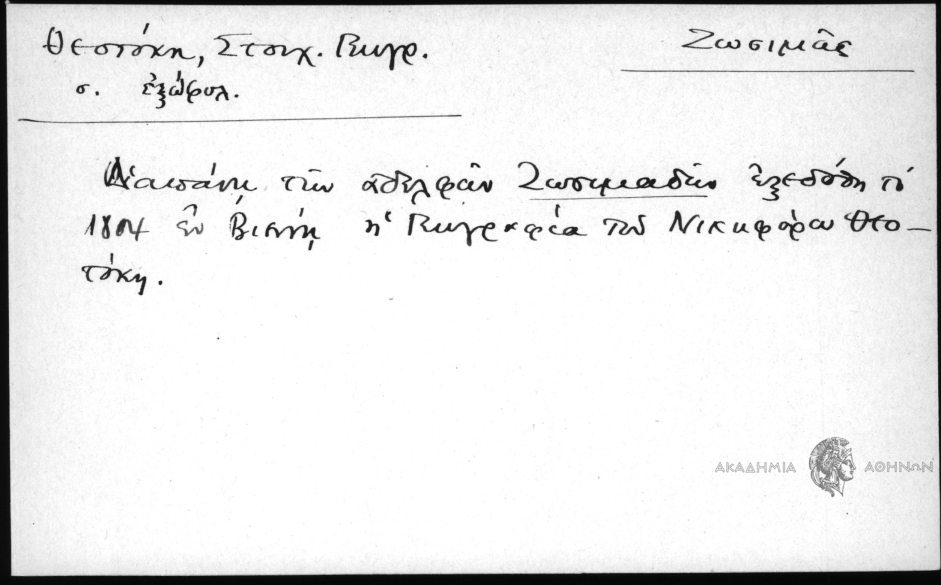 Θεοτόκη, Στοιχ. Γεωγρ.
Ζωσιμᾶς
σ. ἐξώφυλ.
Δαπάνῃ τῶν ἀδελφῶν Ζωσιμαδῶν ἐξεδόθη τὸ
1804 ἐν Βιέννῃ ἡ Γεωγραφία τοῦ Νικηφόρου Θεο-
τόκη.
ΑΚΑΔΗΜΙΑ ΑΘΗΝΩΝ